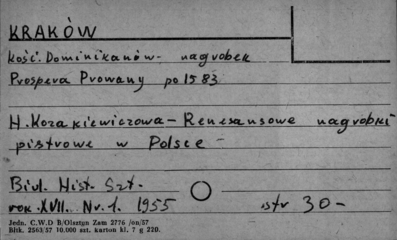 KRAKÓW
kość. Dominikanów - nagrobek
Prospera Prowany po 1583
H. Kozakiewiczowa - Renesansowe nagrobki
piętrowe w Polsce -
Biul. Hist. Szt.
rok XVII. Nr. 1. 1955 str 30-
Jedn. C.W.D B/Olsztyn Zam 2776 /on/57
Bltk. 2563/57 10.000 szt. karton kl. 7 g 220.